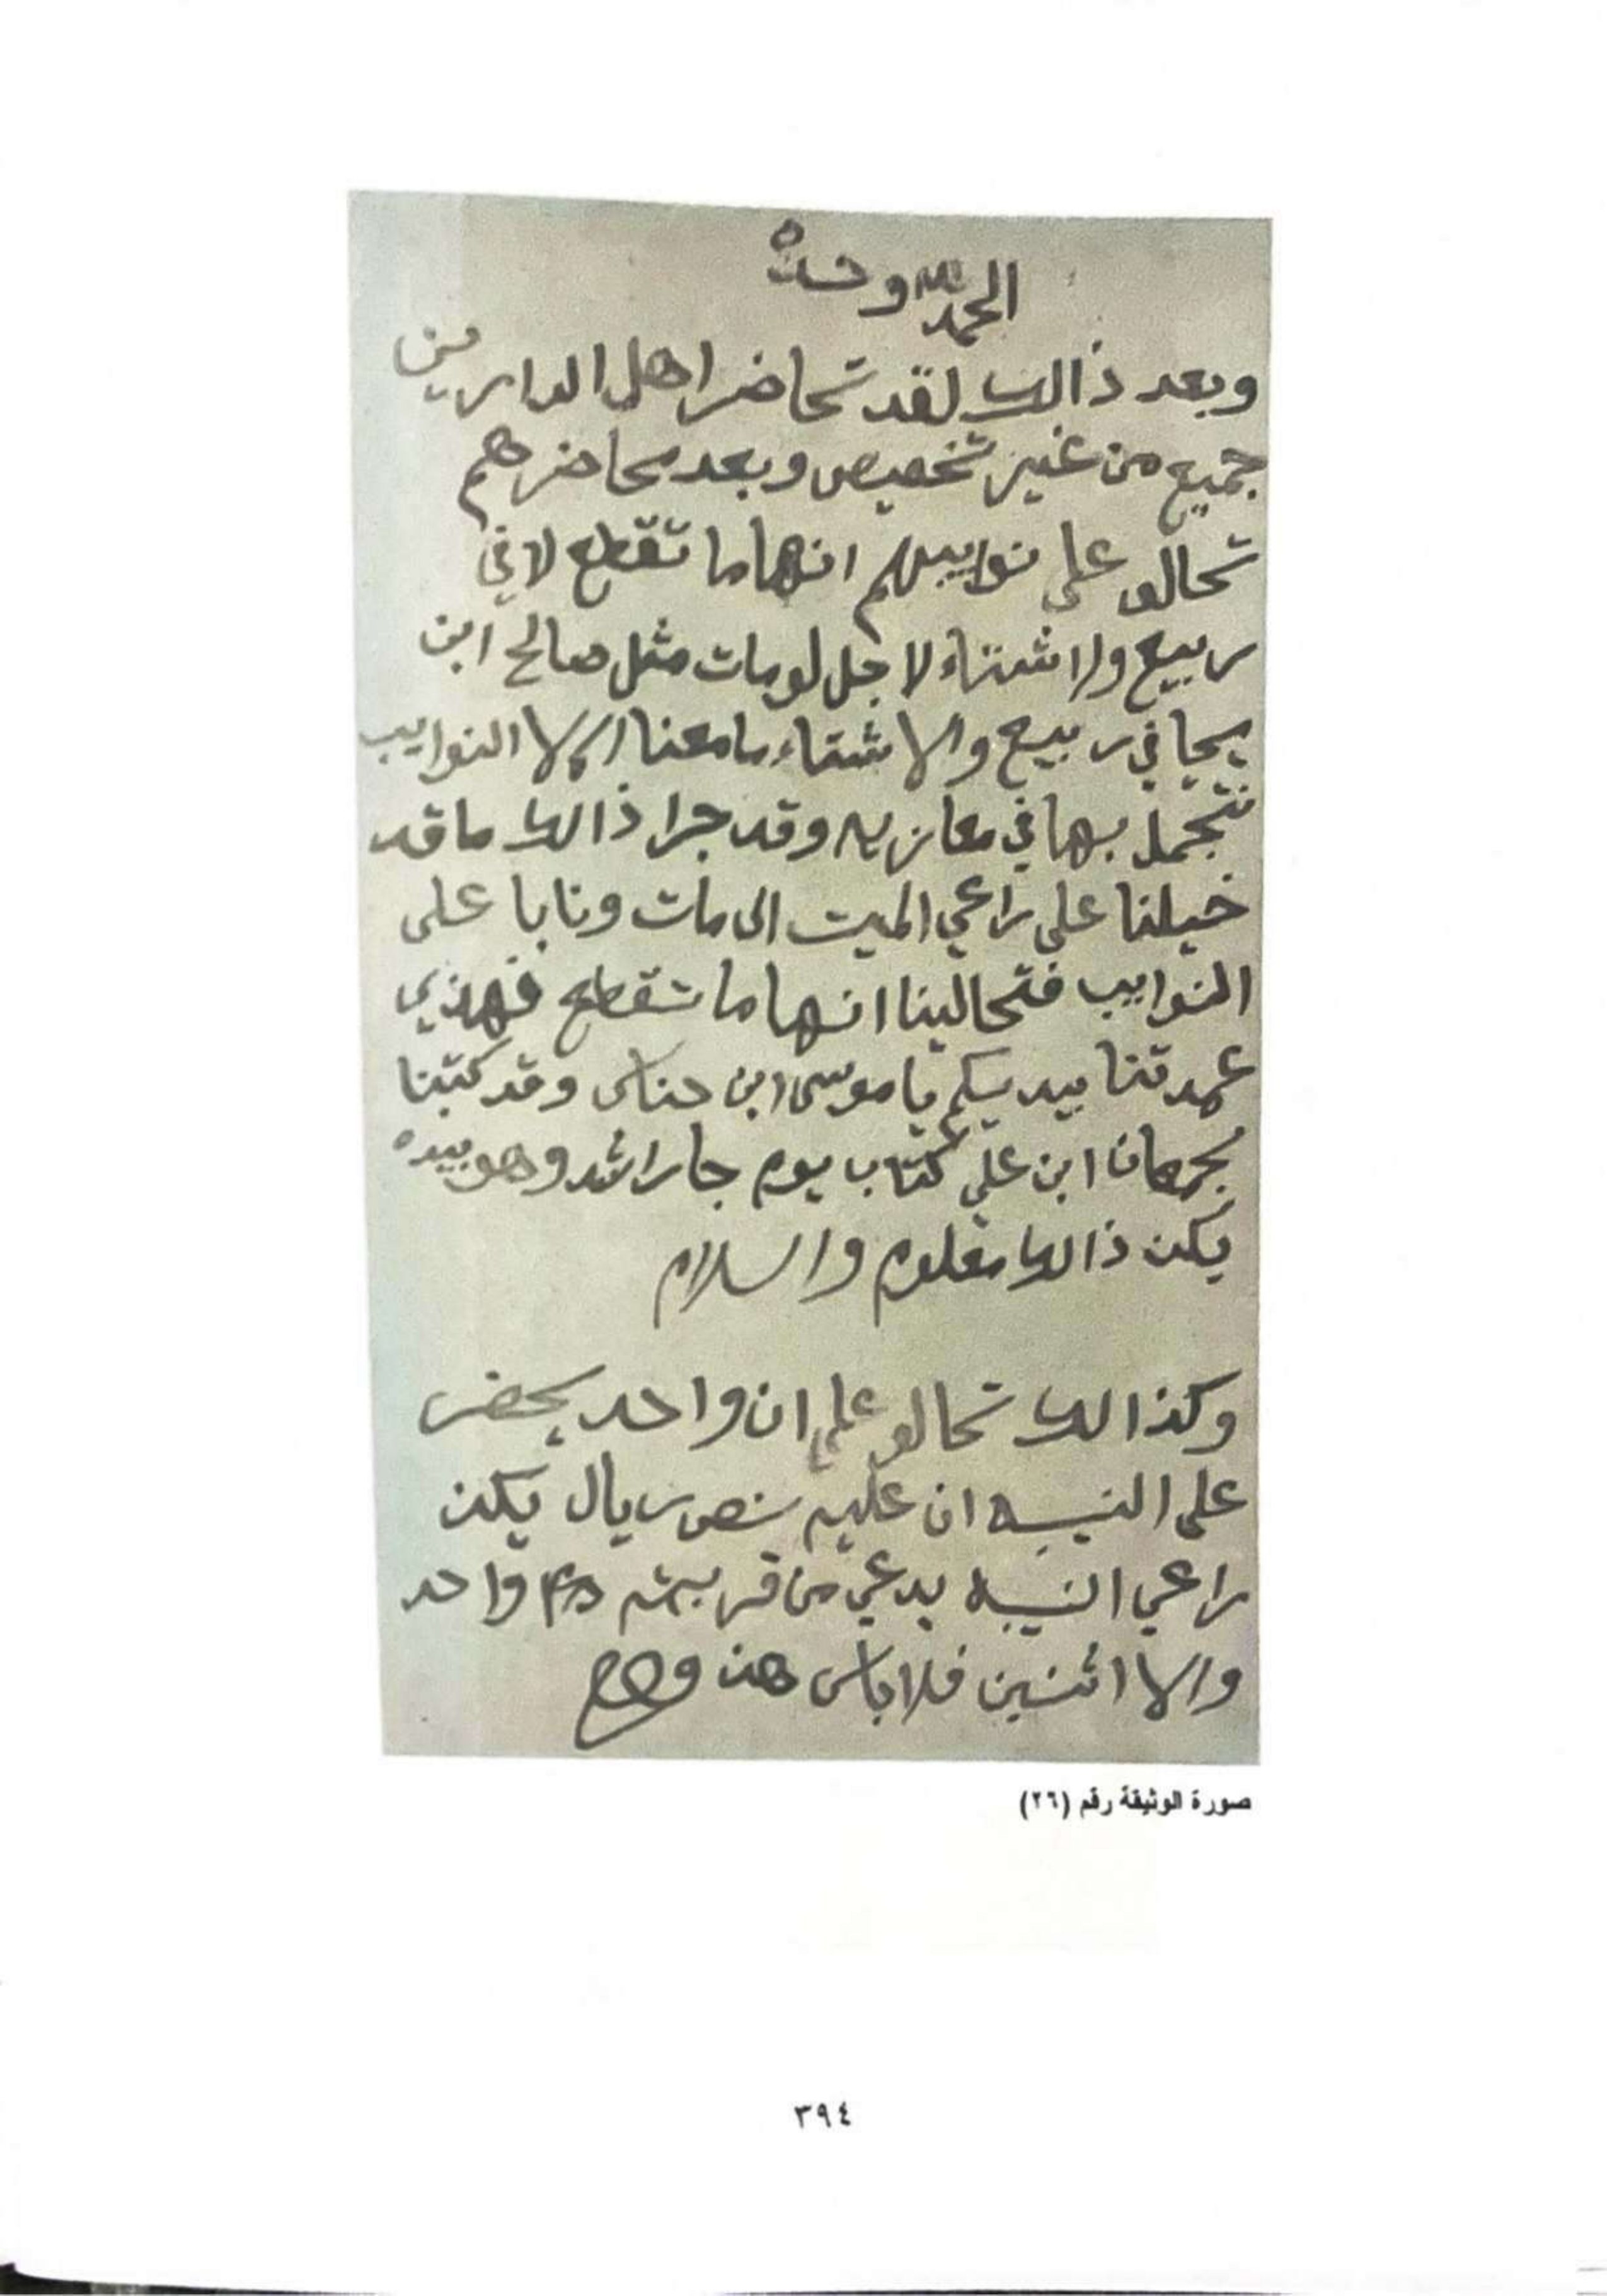 الحمد لله وحده
وبعد ذالك لقد تحاضر اهل الدارين
جميع من غير تخصيص وبعد محاضرهم
تحالو على نواييبهم انها ما تقطع لا في
ربيع ولا شتاء لاجل لومات مثل صالح ابن
يحيا في ربيع والا شتاء ما معنا الا النواييب
نتجمل بها في معازيه وقد جرا ذالك ما قد
خيلنا على راعي الميت الى مات ونابا على
النواييب فتحالينا انها ما تقطع فهاذي
عهدتنا بيديكم يا موسى ابن حناس وقد كتبنا
بجمعان ابن علي كتاب يوم جا راشد وهو بيده
يكن ذالك معلوم والسلام
وكذالك تحالو على ان واحد يحضر
على النيبه ان عليه نص ريال يكن
راعي النيبه يدعي من قريته واحد
والا اثنين فلا باس
صورة الوثيقة رقم (٢٦)
٣٩٤